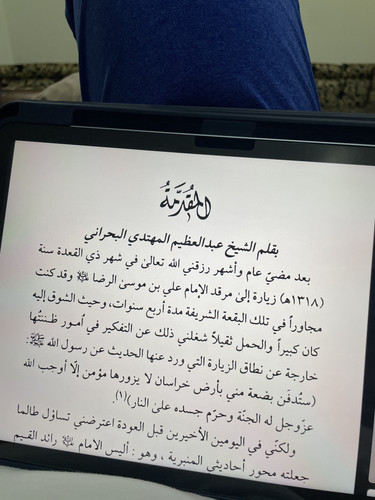 المُقدّمَةُ
بقلم الشيخ عبدالعظيم المهتدي البحراني
بعد مضيّ عام وأشهر رزقني الله تعالىٰ في شهر ذي القعدة سنة
(١٣١٨هـ) زيارة إلىٰ مرقد الإمام علي بن موسىٰ الرضا ﷺ وقد كنت
مجاوراً في تلك البقعة الشريفة مدة أربع سنوات، وحيث الشوق إليه
كان كبيراً والحمل ثقيلاً شغلني ذلك عن التفكير في أمور ظننتُها
خارجة عن نطاق الزيارة التي ورد عنها الحديث عن رسول الله ﷺ:
(ستُدفَن بضعة مني بأرض خراسان لا يزورها مؤمن إلّا أوجب الله
عزّوجل له الجنّة وحرّم جسده علىٰ النار)(١).
ولكنّي في اليومين الأخيرين قبل العودة اعترضني تساؤل طالما
جعلته محور أحاديثي المنبرية ، وهو : أليس الامام رائد القيم